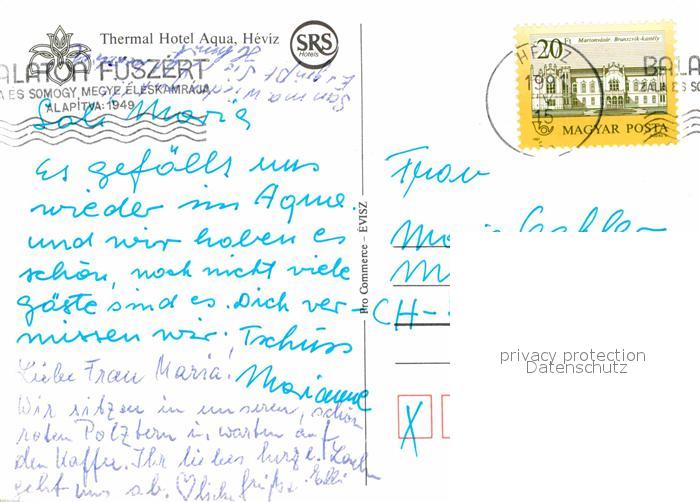 Thermal Hotel Aqua, Hévíz
SRS
Hotels
BALATON FŰSZÉRT
ZALA ÉS SOMOGY MEGYE ÉLÉSKAMRÁJA
ALAPÍTVA: 1949
20 Ft
Martonvásár, Brunszvik-kastély
MAGYAR POSTA
HÉVÍZ
199
15
BALA
ZALA ÉS SO
Maria
Es gefällt uns
wieder im Aqua.
und wir haben es
schön, noch nicht viele
gäste sind es. Dich ver-
missen wir. Tschüss
Marianne
Liebe Frau Maria!
Wir sitzen in unseren, schön
roten Polstern u. warten auf
den Kaffee. Ihr liebes
geht uns ab.
Pro Commerce – ÉVISZ
Frau
CH-
privacy protection
Datenschutz